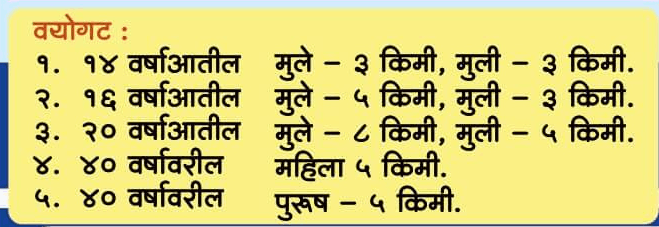 वयोगट :
१. १४ वर्षाआतील मुले – ३ किमी, मुली – ३ किमी.
२. १६ वर्षाआतील मुले – ५ किमी, मुली – ३ किमी.
३. २० वर्षाआतील मुले – ८ किमी, मुली – ५ किमी.
४. ४० वर्षावरील महिला ५ किमी.
५. ४० वर्षावरील पुरूष – ५ किमी.